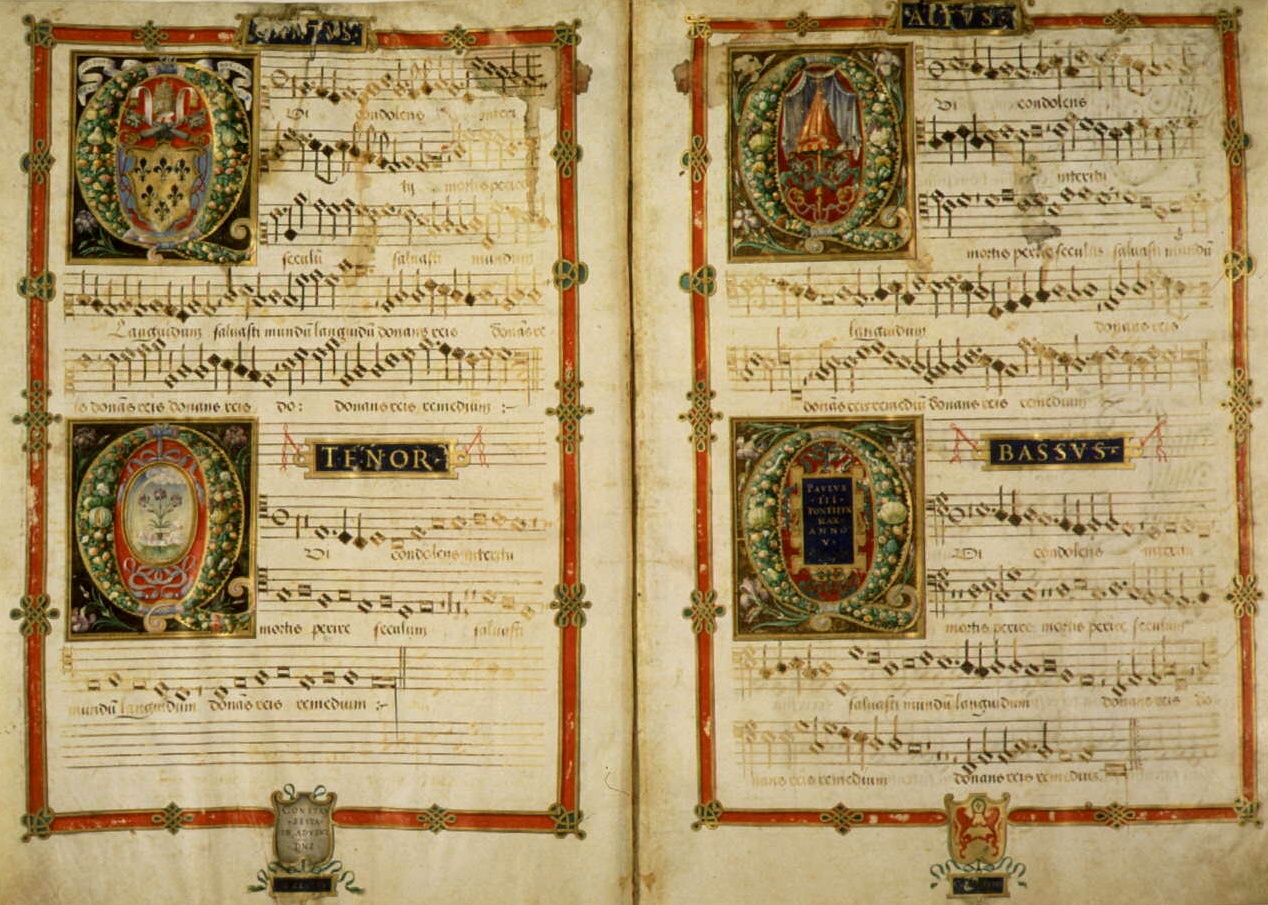 CANTVS
Qui condolens interi
tu mortis perire
seculū saluasti mundum
Languidum saluasti mundū languidū donans reis donās re
is donās reis donans reis do: donans reis remedium :~
TENOR
Qui condolens interitu
mortis perire seculum saluasti
mundū languidum donās reis remedium :~
CONSTA
FESTA
IN ADVENT
DNI
ALTVS
Qui condolens
interitu
mortis perire seculum saluasti mundū
languidum donans reis
donās reis remediū donans reis remedium
BASSVS
PAVLVS
III
PONTIFEX
MAX
ANNO
V
Qui condolens
mortis perire mortis perire seculum
saluasti mundū languidum donans reis do
nans reis remedium donans reis remediū